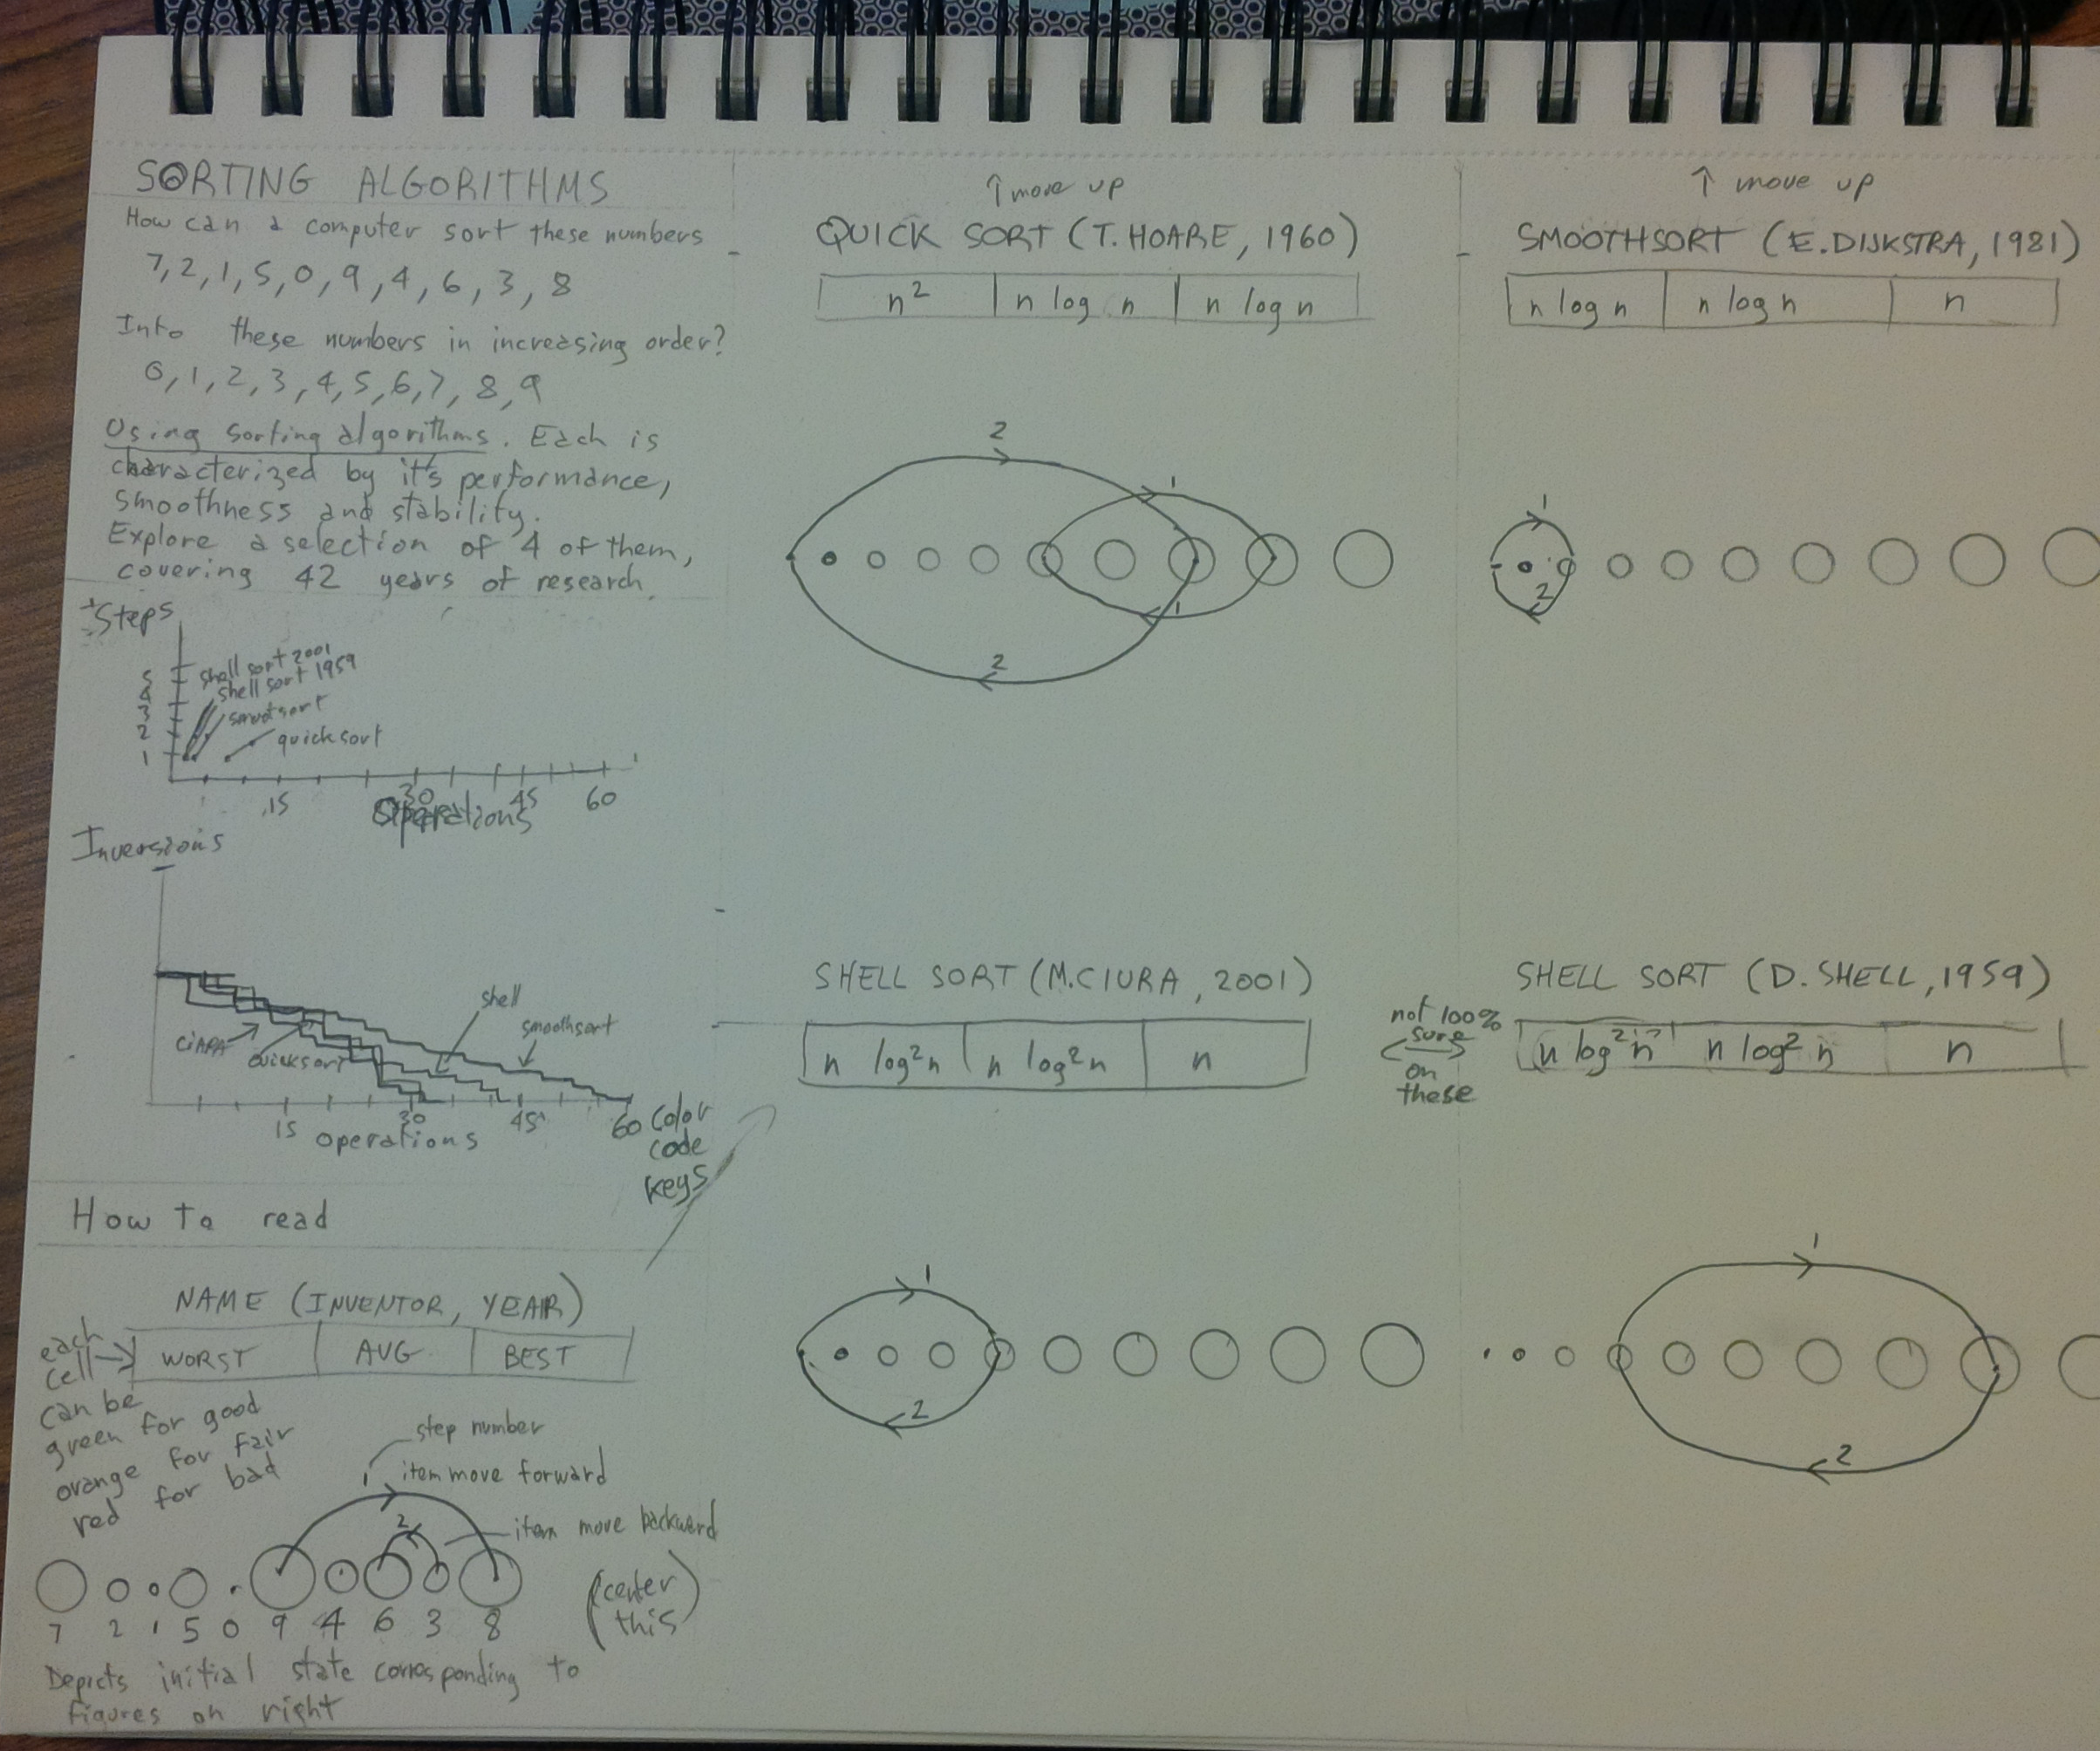 SORTING ALGORITHMS
How can a computer sort these numbers
7, 2, 1, 5, 0, 9, 4, 6, 3, 8
Into these numbers in increasing order?
0, 1, 2, 3, 4, 5, 6, 7, 8, 9
Using sorting algorithms. Each is
characterized by it's performance,
smoothness and stability.
Explore a selection of 4 of them,
covering 42 years of research.
Steps
5
4
3
2
1
shell sort 2001
shell sort 1959
smootsort
quicksort
15 30 45 60
Operations
Inversions
shell
smoothsort
quicksort
15 30 45 60
operations
color
code
keys
How to read
NAME (INVENTOR, YEAR)
WORST AVG BEST
each
cell
can be
green for good
orange for fair
red for bad
step number
1
item move forward
2
item move backward
7 2 1 5 0 9 4 6 3 8
(center
this)
Depicts initial state corresponding to
figures on right
↑ move up
QUICK SORT (T. HOARE, 1960)
n² n log n n log n
2
1
1
2
↑ move up
SMOOTHSORT (E. DIJKSTRA, 1981)
n log n n log n n
1
2
SHELL SORT (M. CIURA, 2001)
n log²n n log²n n
1
2
not 100%
sure
on
these
SHELL SORT (D. SHELL, 1959)
n log²n n log² n n
1
2